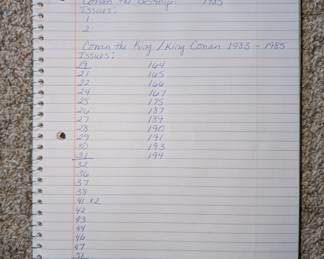 Conan the Destroyer 1985
Issues:
1
2
Conan the King / King Conan 1983 - 1985
Issues:
19 164
21 165
22 166
24 167
25 175
26 187
27 189
28 190
29 191
30 193
31 194
32
36
37
38
41 x2
42
43
44
46
47